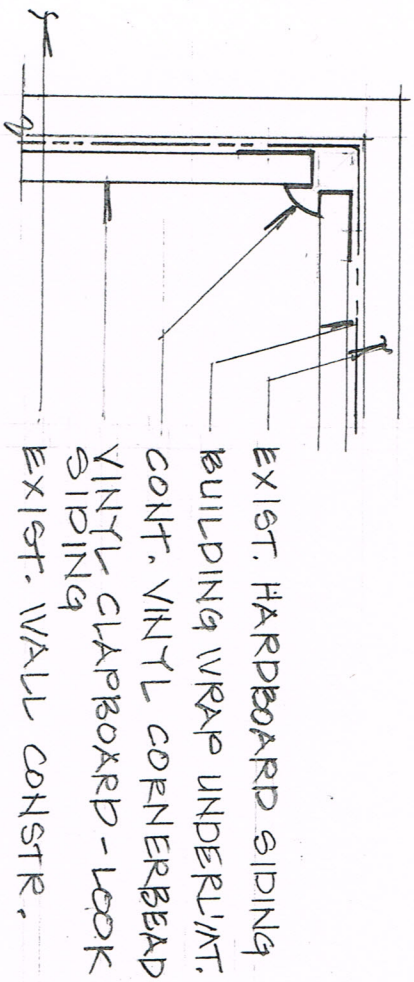 EXIST. HARDBOARD SIDING
BUILDING WRAP UNDERL'AT.
CONT. VINYL CORNERBEAD
VINYL CLAPBOARD - LOOK
SIDING
EXIST. WALL CONSTR.